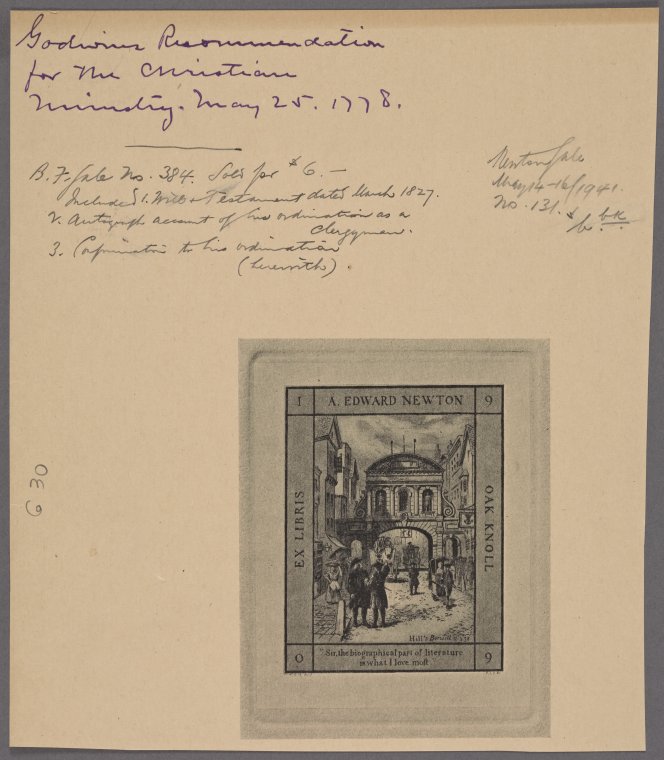 Godwins Recommendation
for The Christian
Ministry. May 25. 1778.
B. F. Sale No. 384. Sold for $6.—
Included 1. Will & Testament dated March 1827.
2. Autograph account of his ordination as a
clergyman.
3. Confirmation to his ordination
(herewith).
Newton Sale
May 14-16/1941.
No. 131. $
630
1 A. EDWARD NEWTON 9
EX LIBRIS
OAK KNOLL
Hill's Boswell
0 "Sir, the biographical part of literature 9
is what I love most."